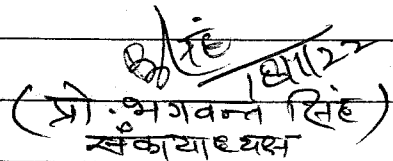 (प्रो. भगवन्त सिंह)
संकायाध्यक्ष